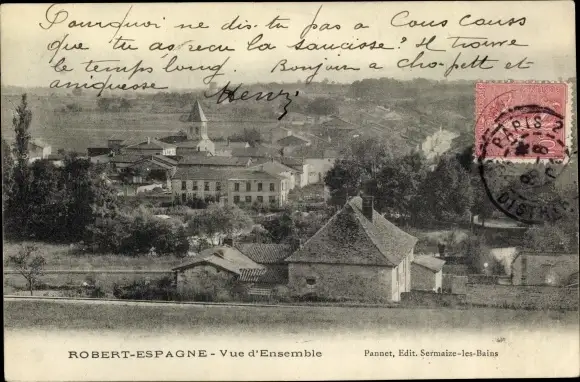 Pourquoi ne dis-tu pas a Cous Couss
que tu as reçu la saucisse? Il trouve
le temps long. Bonjour a cho-pett et
aniqueuse
Henri
PARIS 2
DISTRIB
ROBERT-ESPAGNE - Vue d'Ensemble
Pannet, Edit. Sermaize-les-Bains